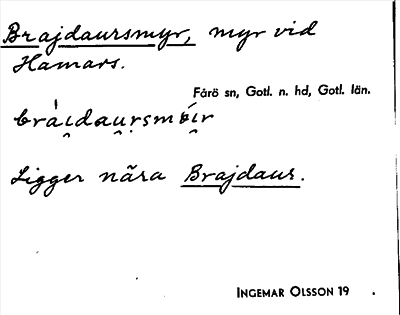 Brajdaursmyr, myr vid
Hamars.
Fårö sn, Gotl. n. hd, Gotl. län.
Ligger nära Brajdaur.
INGEMAR OLSSON 19